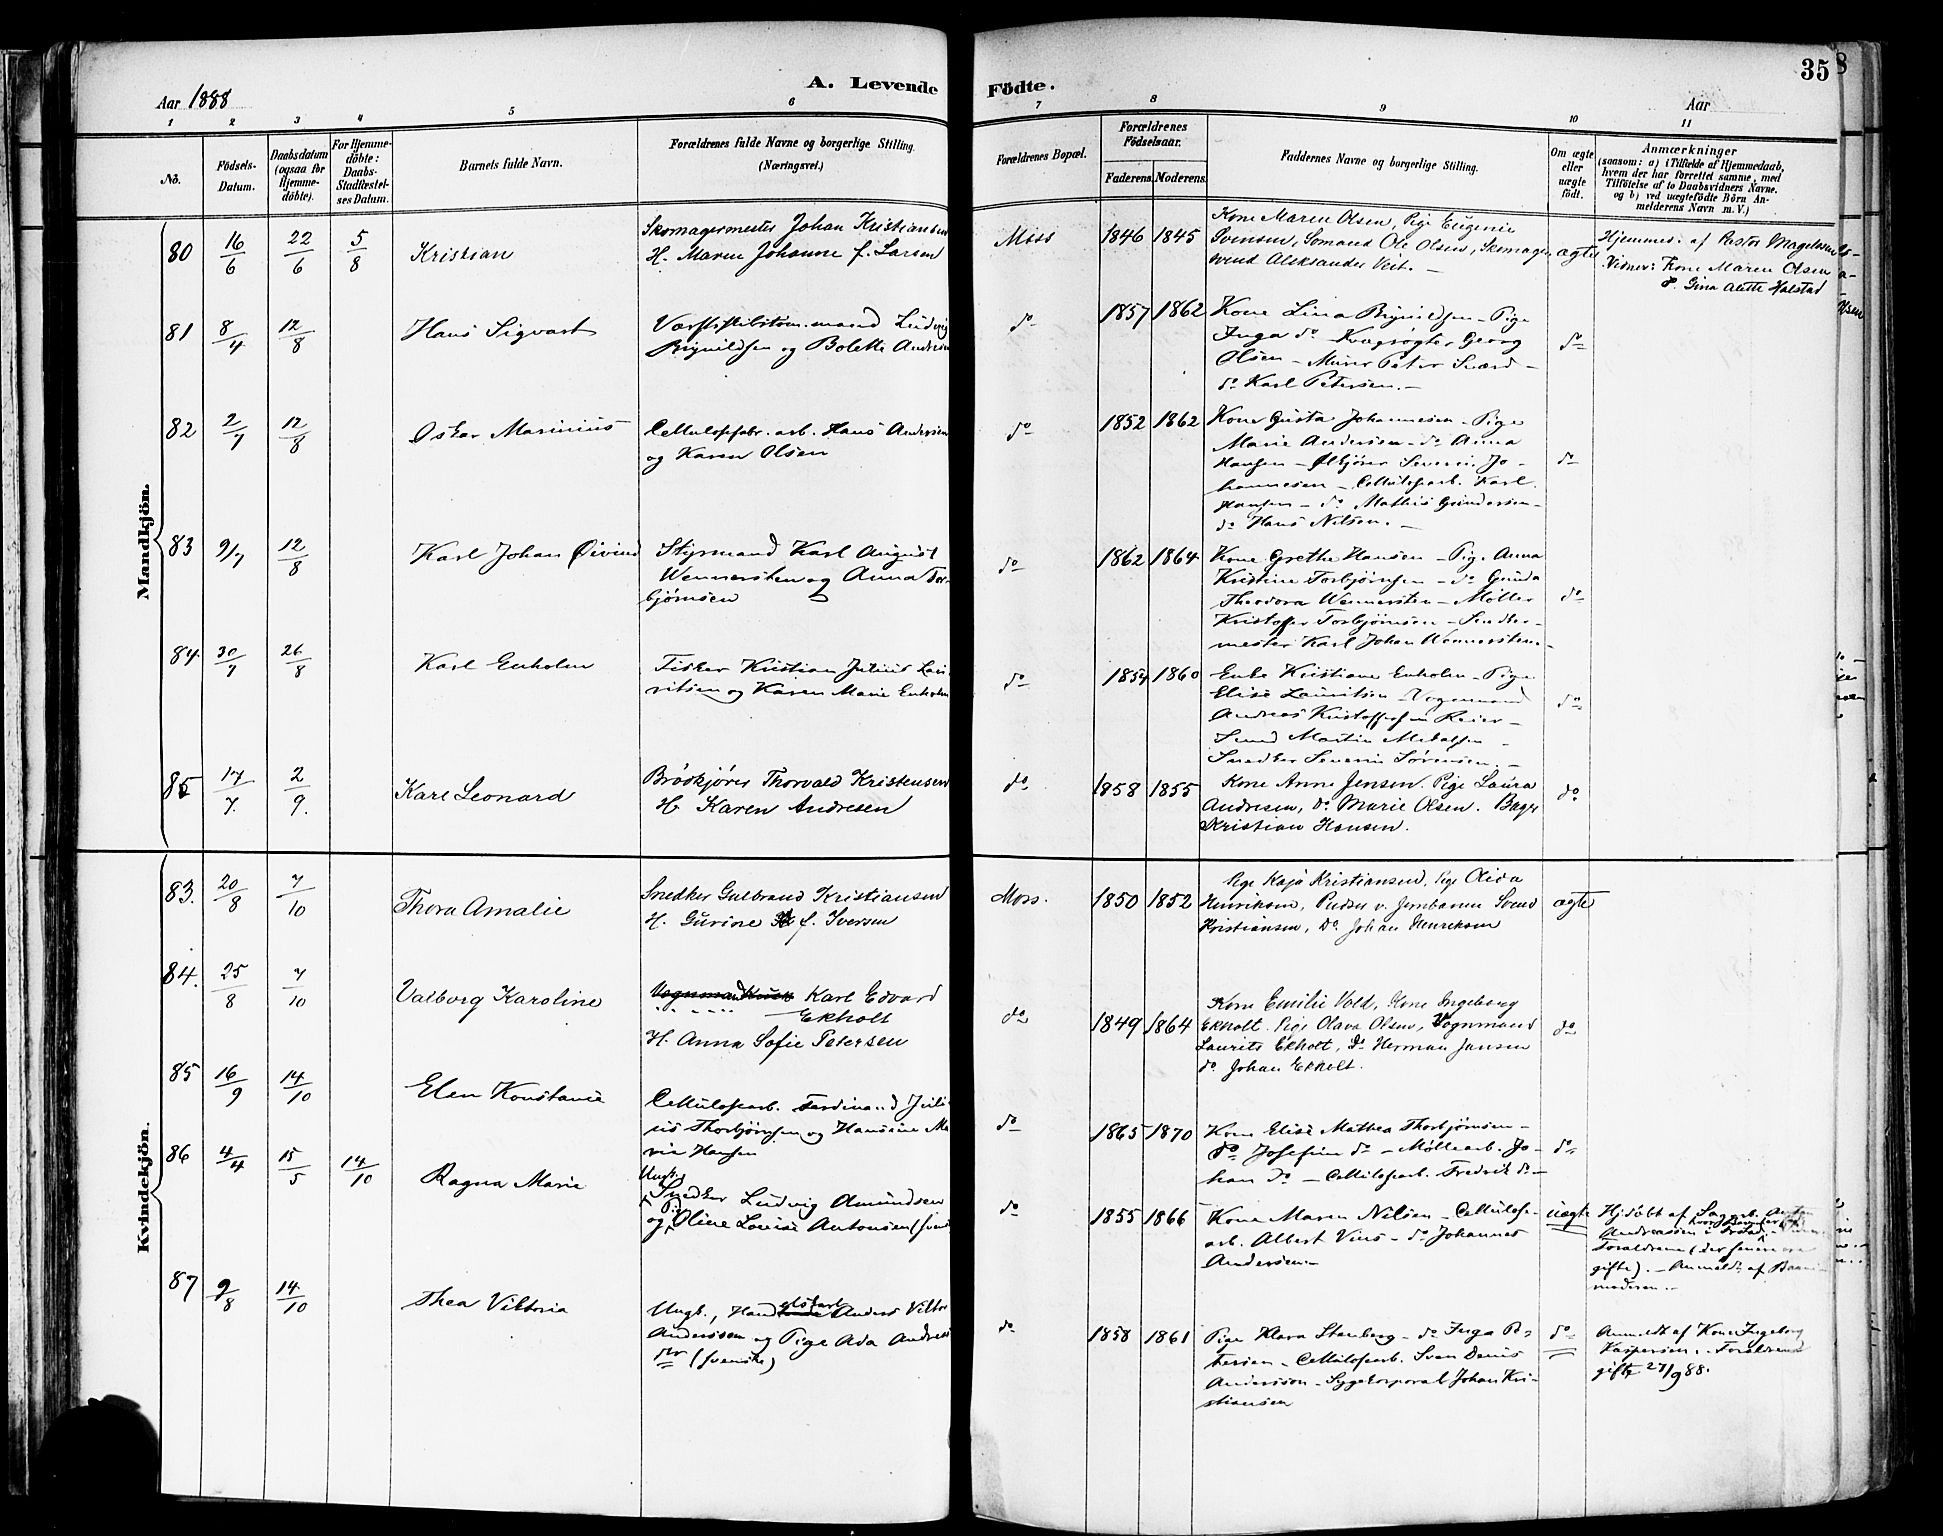 A. Levende
Födte.
35
Aar 1888
Aar
1 2 3 4 5 6 7 8 9 10 11
No.
Födsels-
Datum.
Daabsdatum
(ogsaa for
Hjemme-
döbte).
For Hjemme-
döbte:
Daabs-
Stadfæstel-
ses Datum.
Barnets fulde Navn.
Forældrenes fulde Navne og borgerlige Stilling.
(Næringsvei.)
Forældrenes Bopæl.
Forældrenes
Födselsaar.
Faderens. Moderens.
Faddernes Navne og borgerlige Stilling.
Om ægte
eller
uægte
födt.
Anmærkninger
(saasom: a) i Tilfælde af Hjemmedaab,
hvem der har forrettet samme, med
Tilföielse af to Daabsvidners Navne.
og b) ved uægtefödte Börn An-
melderens Navn m. V.)
Mandkjön.
80 16/6 22/6 5/8 Kristian
Skomagermester Johan Kristiansen
H. Maren Johanne f. Larsen
Moss 1846 1845
Kone Maren Olsen, Pige Eugenie
Svensen, Sömand Ole Olsen, Skomager
svend Aleksander Veit. –
ægte
Hjemmed. af Pastor Magelssen
Vidner: Kone Maren Olsen
Gina Alette Halstad
81 8/4 12/8 Hans Sigvart
mand Ludvig
Brynildsen og Bolette Andresen
do 1857 1862
Kone Lina Brynildsen – Pige
Inga do – Kvægrøgter Georg
Olsen – Murer Peter Sværd –
do Karl Petersen. –
do
82 2/7 12/8 Oskar Marinius
Cellulosefabr. arb. Hans Andersen
og Karen Olsen
do 1852 1862
Kone Gusta Johannesen – Pige
Marie Andersen – do Anna
Hansen – Ølkjører Severin Jo-
hannesen – Cellulosearb. Karl
Hansen – do Mathis Gundersen –
do Hans Nilsen. –
do
83 9/7 12/8 Karl Johan Øivind
Styrmand Karl August
Wennersten og Anna Tor-
bjørnsen
do 1862 1864
Kone Grethe Hansen – Pige Anna
Kristine Torbjørnsen – do Gunda
Theodora Wennersten – Møller
Kristoffer Torbjørnsen – Snedker-
mester Karl Johan Wennersten. –
do
84. 30/7 26/8 Karl Enholm
Fisker Kristian Julius Lau-
ritsen og Karen Marie Enholm
do 1854 1860
Enke Kristiane Enholm – Pige
Elise Lauritsen – Vognmand
Andreas Kristoffersen Reier –
Smed Martin
Snedker Severin Sørensen. –
do
85 17/7. 2/9. Karl Leonard
Brøskjører Thorvald Kristensen
H. Karen Andresen
do 1858 1855
Kone Anne Jensen. Pige Laura
Andresen, do Marie Olsen. Bager
Kristian Hansen.
do
Kvindekjön.
83. 20/8 7/10 Thora Amalie
Snedker Gulbrand Kristiansen
H. Gurine f. Iversen
Moss. 1850 1852
Pige Kaja Kristiansen, Pige Alida
Henriksen, Pudser v. Jernbanen Svend
Kristiansen, do Johan Henriksen
ægte
84. 25/8 7/10 Valborg Karoline
Vognmand Karl Edvard
Ekholt
H. Anna Sofie Petersen
do 1849 1864
Kone Emilie Vold, Kone Ingeborg
Ekholt. Pige Olava Olsen, Vognmand
Laurits Ekholt, do Herman Jansen
do Johan Ekholt.
do
85 16/9 14/10 Elen Konstanse
Cellulosearb. Ferdinand Juli-
us Thorbjørnsen og Hansine Ma-
rie Hansen
do 1865 1870
Kone Elise Mathea Thorbjørnsen –
do Josefine do – Møllearb. Jo-
han do – Cellulosearb. Fredrik do –
do
86 4/4 15/5 14/10 Ragna Marie
Ungk.
Snedker Ludvig Amundsen
og Pige Oline Louise Antonsen (svensk)
do 1855 1866
Kone Maren Nilsen – Cellulose-
arb. Albert Vens – do Johannes
Andersen –
uægte
Hjdøbt af Sagarb. Anton
Andreassen i
Forældrene (der senere ere
gifte). – Anmeldt af Barne-
moderen. –
87 9/8 14/10 Thea Viktoria
Ungk., Anders Viktor
Anderssen og Pige Ada Andreas-
dtr (svenske)
do 1858 1861
Pige Klara Stenberg – do Inga Pe-
tersen – Cellulosearb. Sven Denis
Andersson – Sygekorporal Johan Kri-
stiansen
do
Anmeldt af Kone Ingeborg
Kaspersen. – Forældrene
gifte 27/9 88.